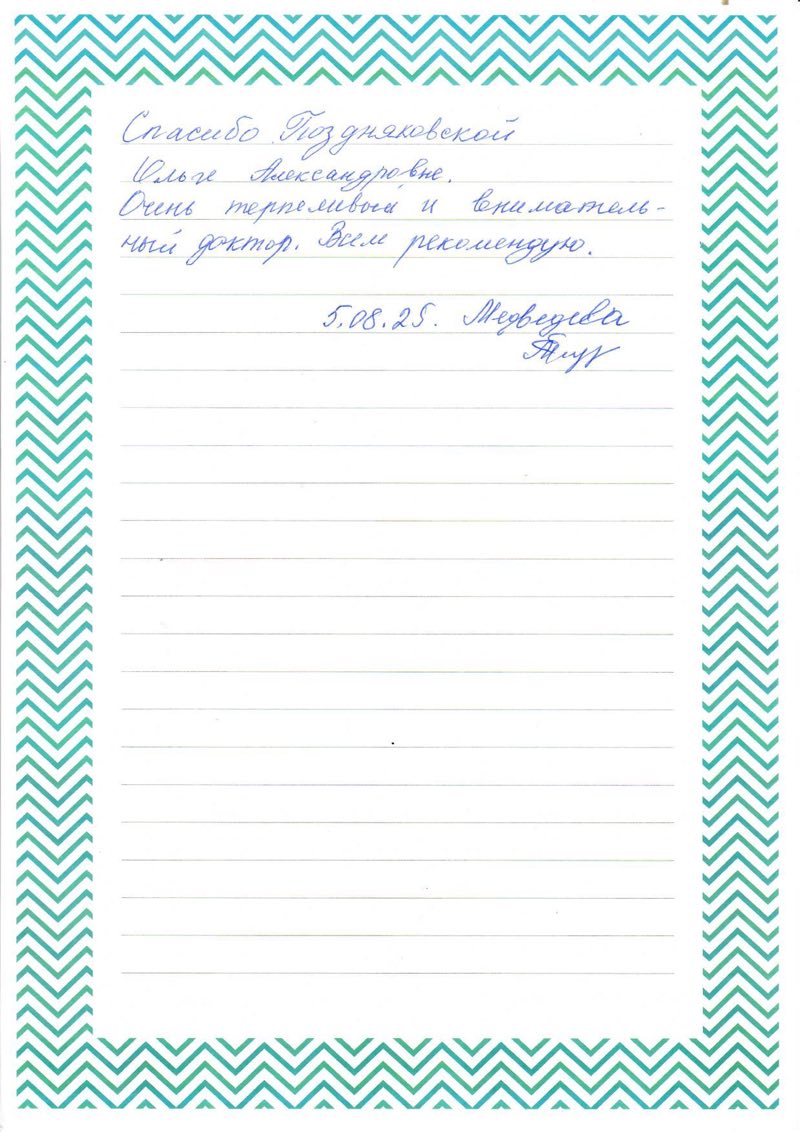 Спасибо Поздняковской
Ольге Александровне.
Очень терпеливый и вниматель-
ный доктор. Всем рекомендую.
5.08.25. Медведева